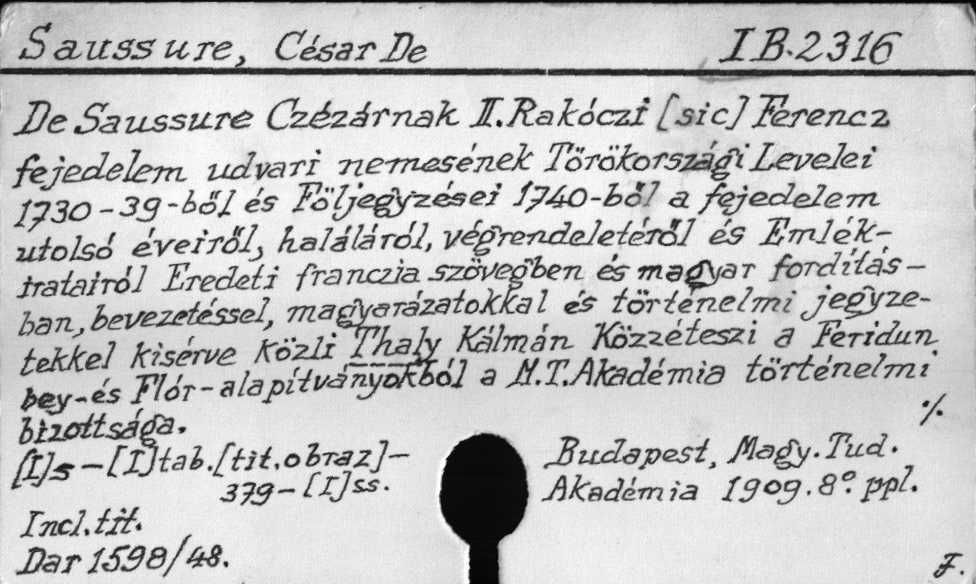 Saussure, César De IB.2316
De Saussure Czézárnak II. Rakóczi [sic] Ferencz
fejedelem udvari nemesének Törökországi Levelei
1730-39-ből és Följegyzései 1740-ből a fejedelem
utolsó éveiről, haláláról, végrendeletéről és Emlék-
iratairól Eredeti franczia szövegben és magyar fordítás-
ban, bevezetéssel, magyarázatokkal és történelmi jegyze-
tekkel kisérve közli Thaly Kálmán Közzéteszi a Feridun
bey-és Flór-alapítványokból a M.T. Akadémia történelmi
bizottsága. ./.
[I]s – [I]tab. [tit. obraz] –
379 – [I] ss.
Budapest, Magy. Tud.
Akadémia 1909. 8°. ppl.
Incl. tit.
Dar 1598/48. F.